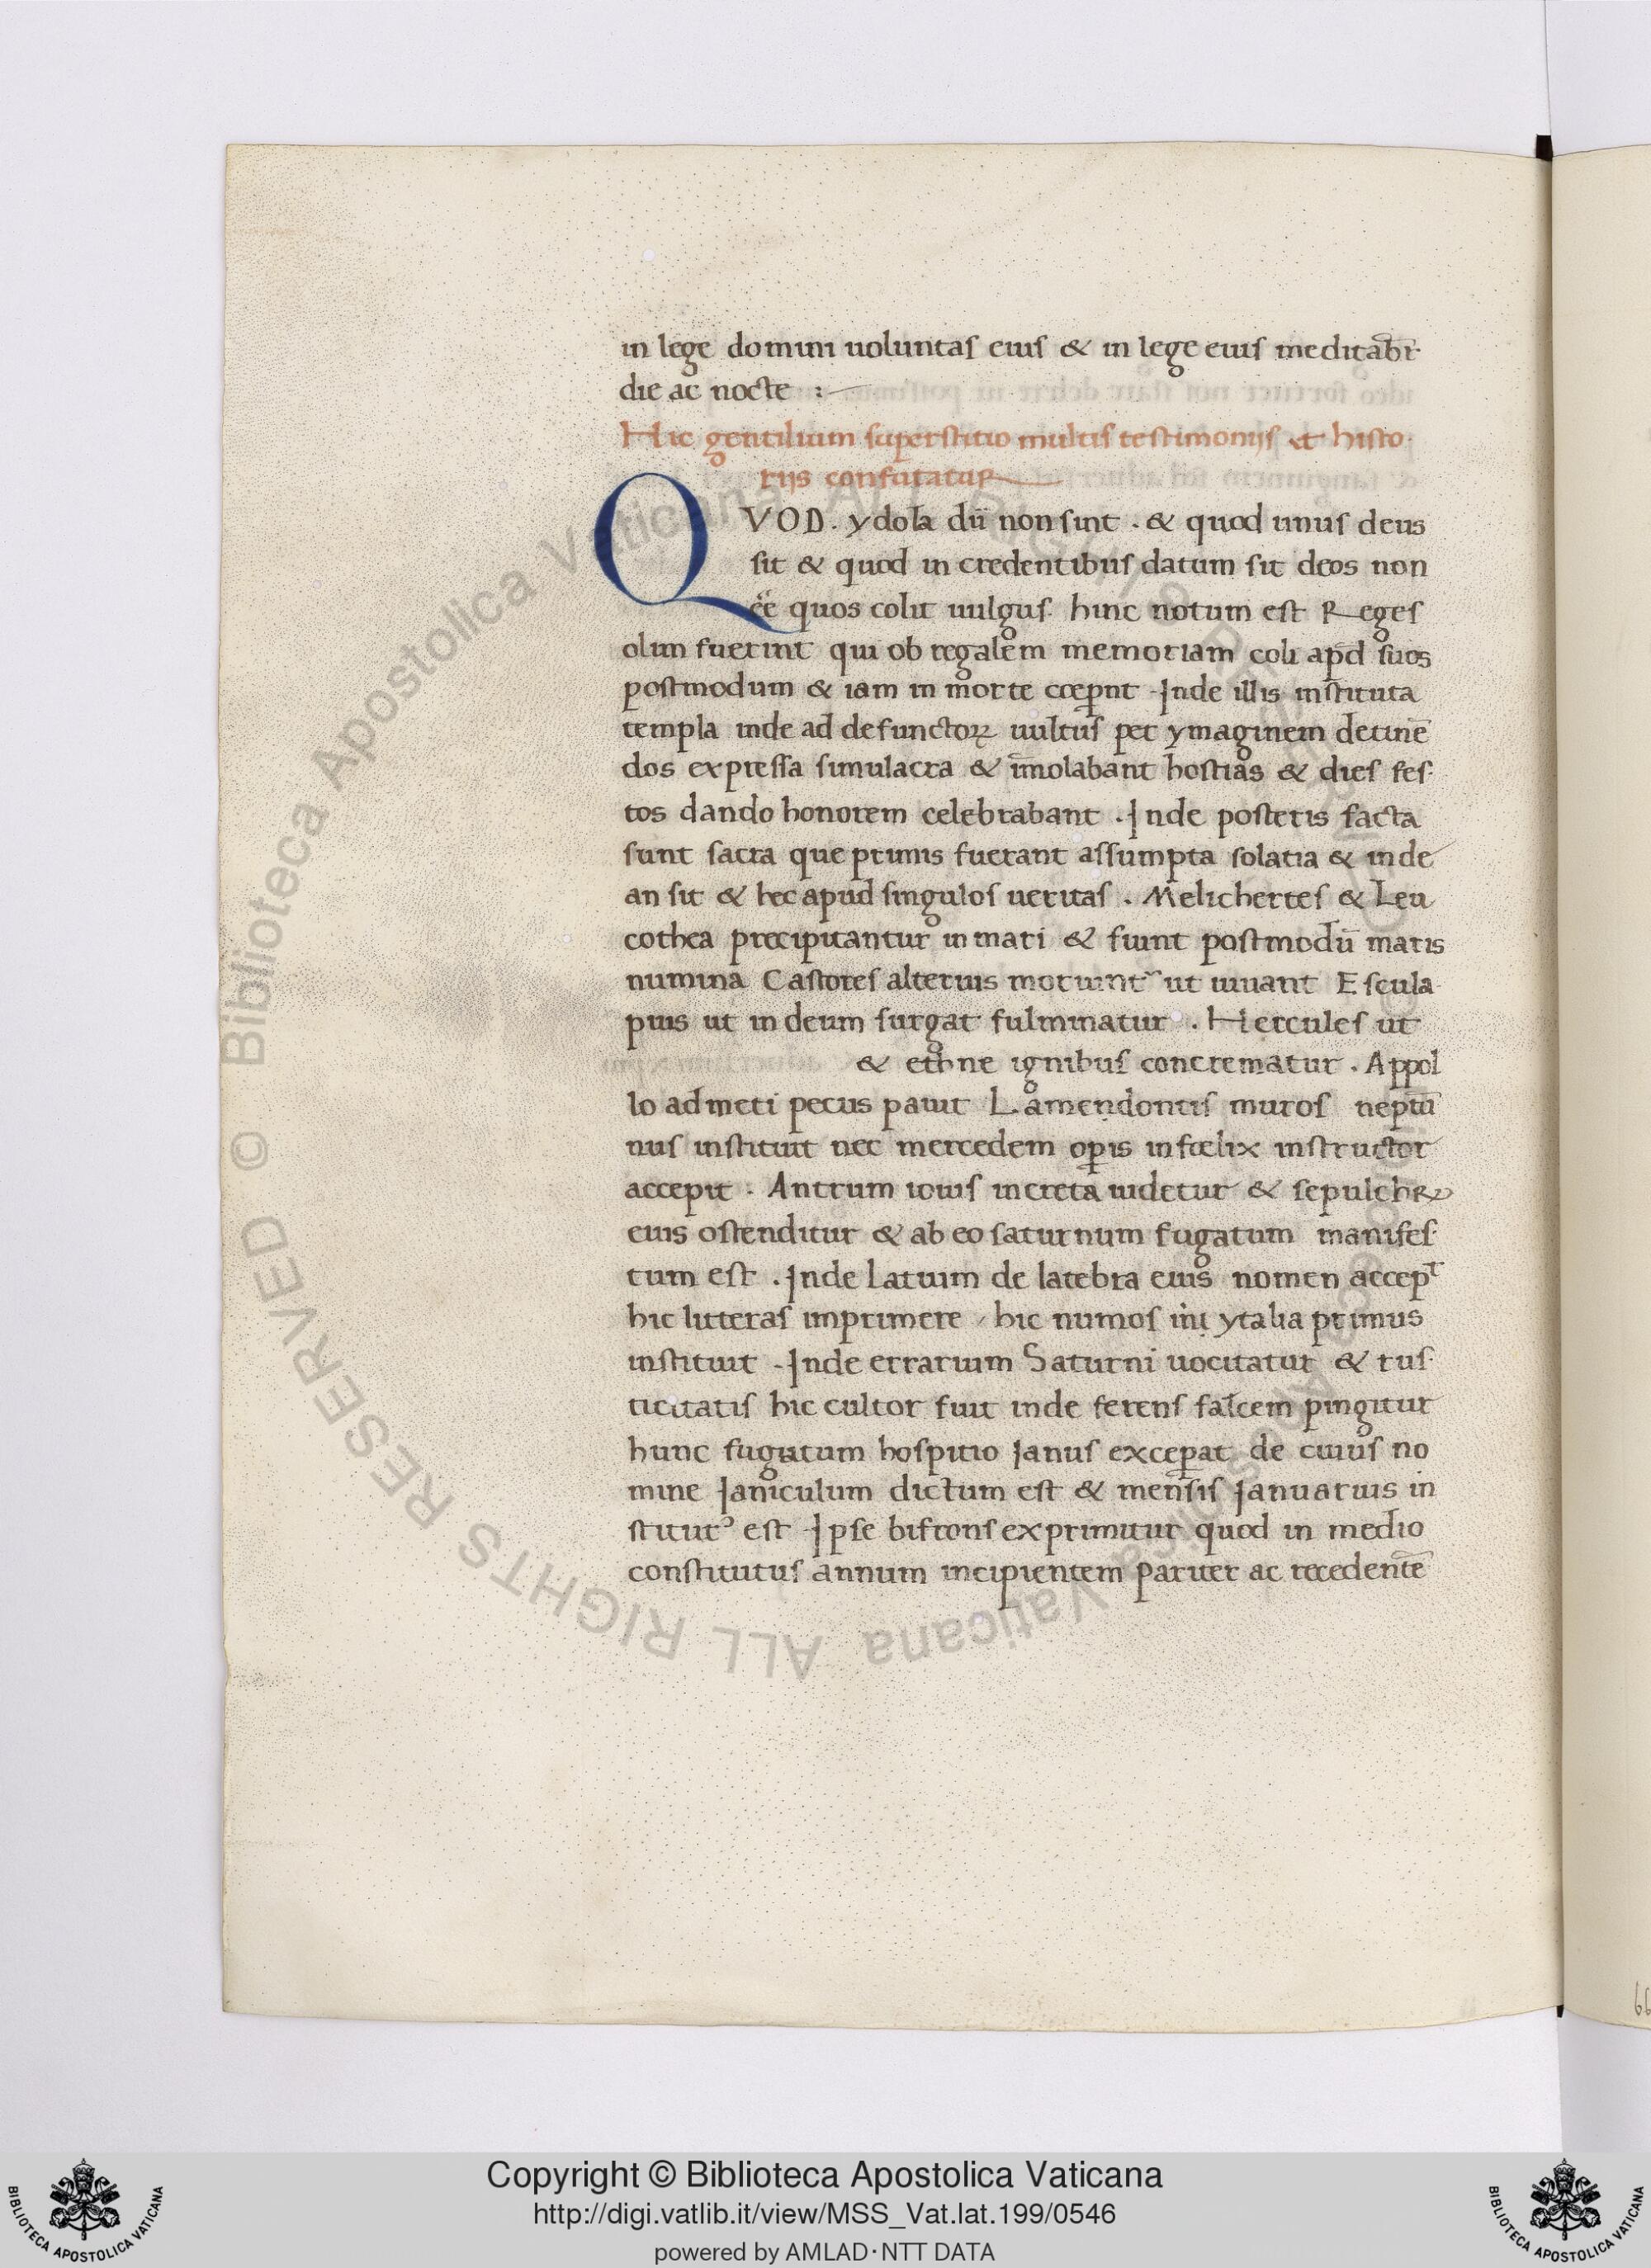 in lege domini uoluntas eius & in lege eius meditabr̄
die ac nocte :
Hic gentilium superstitio multis testimonijs et histo
rijs confutatur
QVOD. ydola dii non sint . & quod unus deus
sit & quod in credentibus datum sit deos non
ēe quos colit uulgus. hinc notum est Reges
olim fuerint qui ob regalem memoriam coli apd̄ suos
postmodum & iam in morte cœpr̄nt . Inde illis instituta
templa inde ad defunctoꝝ uultus per ymaginem detinē
dos expressa simulacra & im̄olabant hostias & dies fes
tos dando honorem celebrabant . Inde posteris facta
sunt sacra que primis fuerant assumpta solatia & inde
an sit & hec apud singulos ueritas . Melichertes & Leu
cothea precipitantur in mari & fiunt postmodū maris
numina Castores alternis moriunt᷑ ut uiuant Escula
pius ut in deum surgat fulminatur . Hercules ut
& ethne ignibus concrematur . Appol
lo admeti pecus pauit Lamendontis muros neptū
nus instituit nec mercedem opis infœlix instructor
accepit . Antrum iouis in creta uidetur & sepulchꝝ
eius ostenditur & ab eo saturnum fugatum manifes
tum est . Inde Latium de latebra eius nomen accepᵗ
hic litteras imprimere / hic numos in ytalia primus
instituit . Inde errarium Saturni uocitatur & rus
ticitatis hic cultor fuit inde ferens falcem pingitur
hunc fugatum hospitio Janus excepat de cuius no
mine Janiculum dictum est & mensis Januarius in
stitutꝰ est . Ipse bifrons exprimitur quod in medio
constitutus annum incipientem pariter ac recedentē
66
© Biblioteca Apostolica Vaticana ALL RIGHTS RESERVED
Copyright © Biblioteca Apostolica Vaticana
http://digi.vatlib.it/view/MSS_Vat.lat.199/0546
powered by AMLAD·NTT DATA
BIBLIOTECA APOSTOLICA VATICANA
BIBLIOTECA APOSTOLICA VATICANA